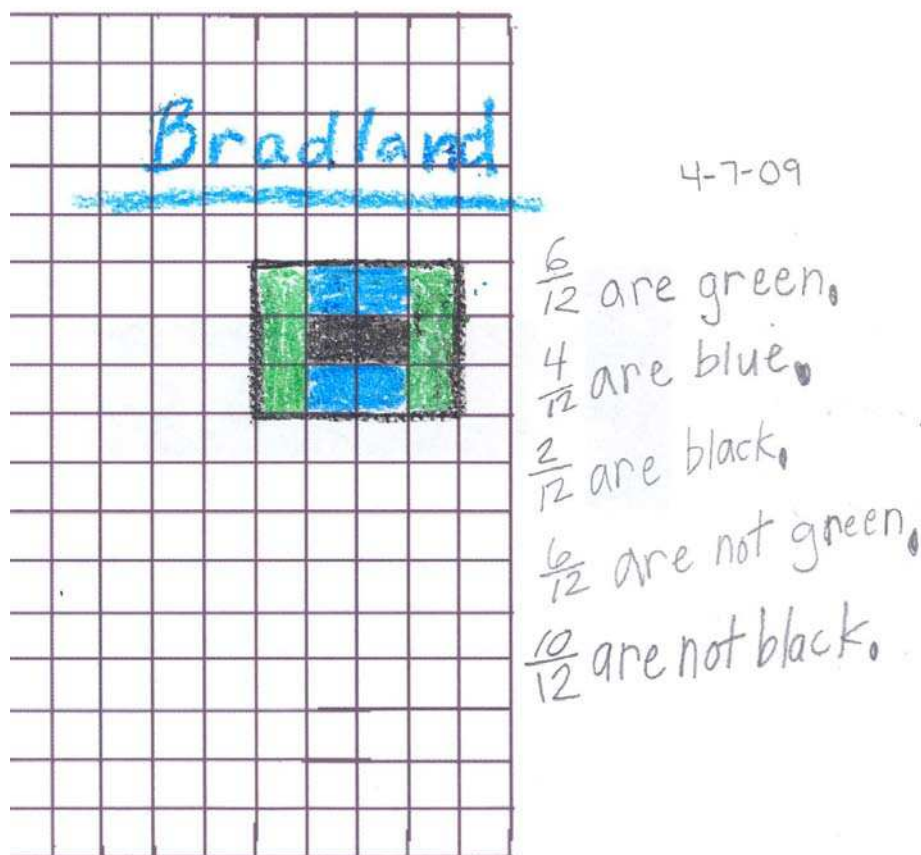 Bradland
4-7-09
6/12 are green.
4/12 are blue.
2/12 are black.
6/12 are not green.
10/12 are not black.